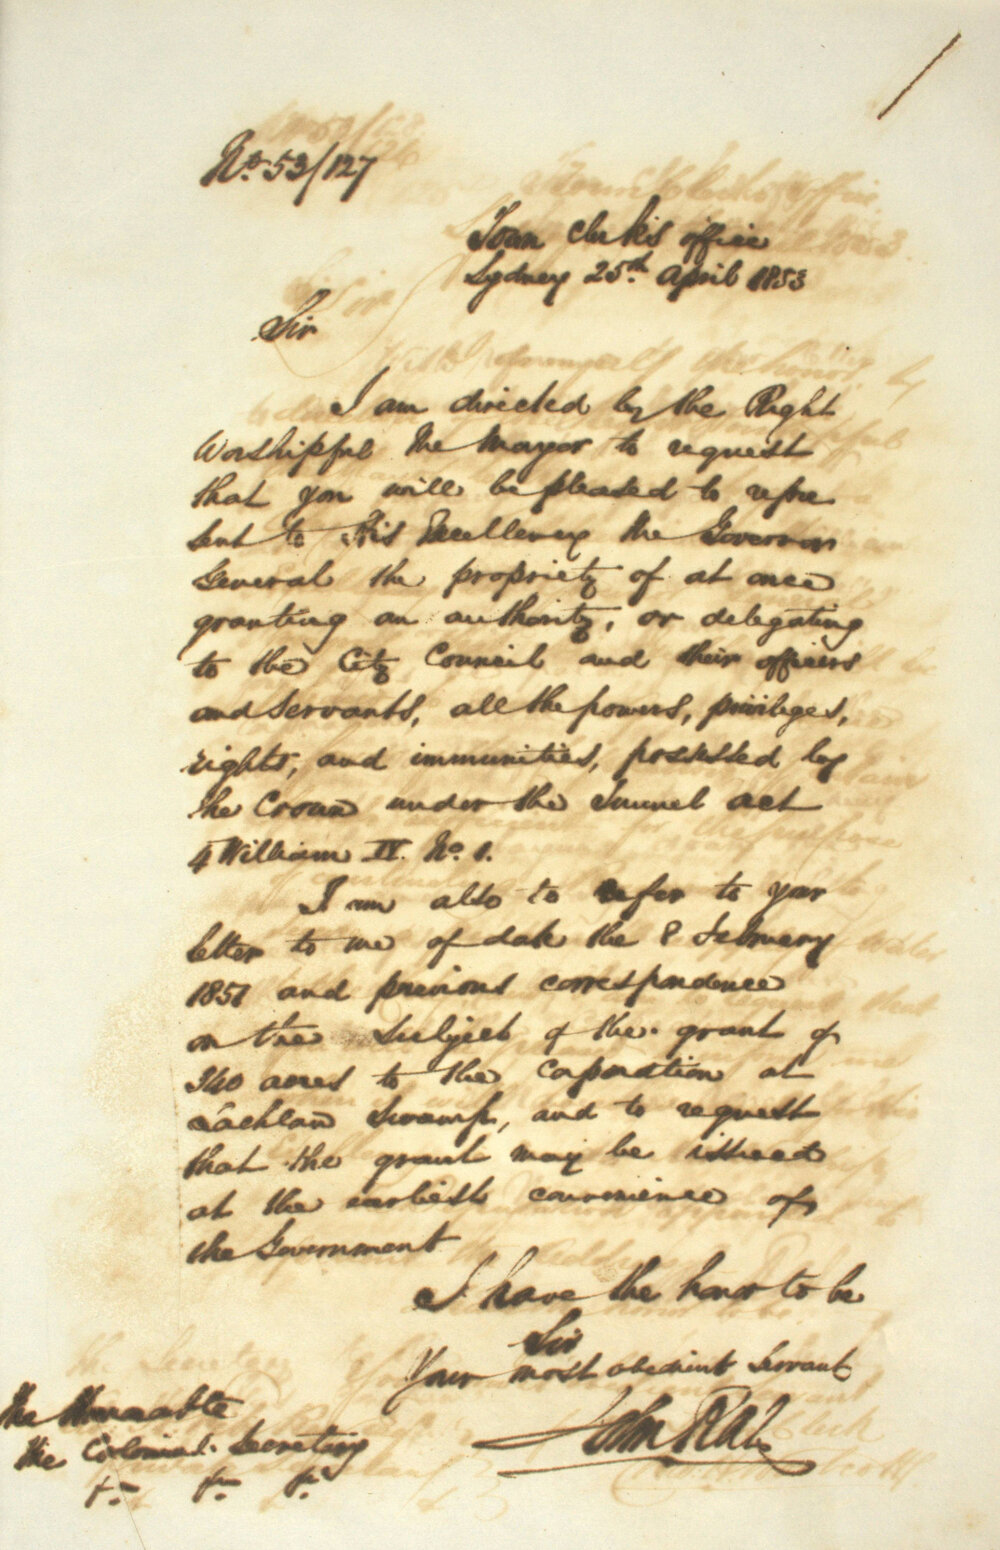 No. 53/127
Town Clerk's Office
Sydney 25th April 1853
Sir
I am directed by the Right
Worshipful the Mayor to request
that you will be pleased to repre
sent to His Excellency the Governor
General the propriety of at once
granting an authority, or delegating
to the City Council and their officers
and Servants, all the powers, privileges,
rights, and immunities, possessed by
the Crown under the Tunnel act
4 William IV. No. 1.
I am also to refer to your
letter to me of date the 8 February
1851 and previous correspondence
on the subject of the grant of
340 acres to the Corporation at
Lachlan Swamp, and to request
that the grant may be issued
at the earliest convenience of
the Government
I have the honor to be
Sir
Your most obedient Servant
John Rae
The Honorable
the Colonial Secretary
&c. &c. &c.